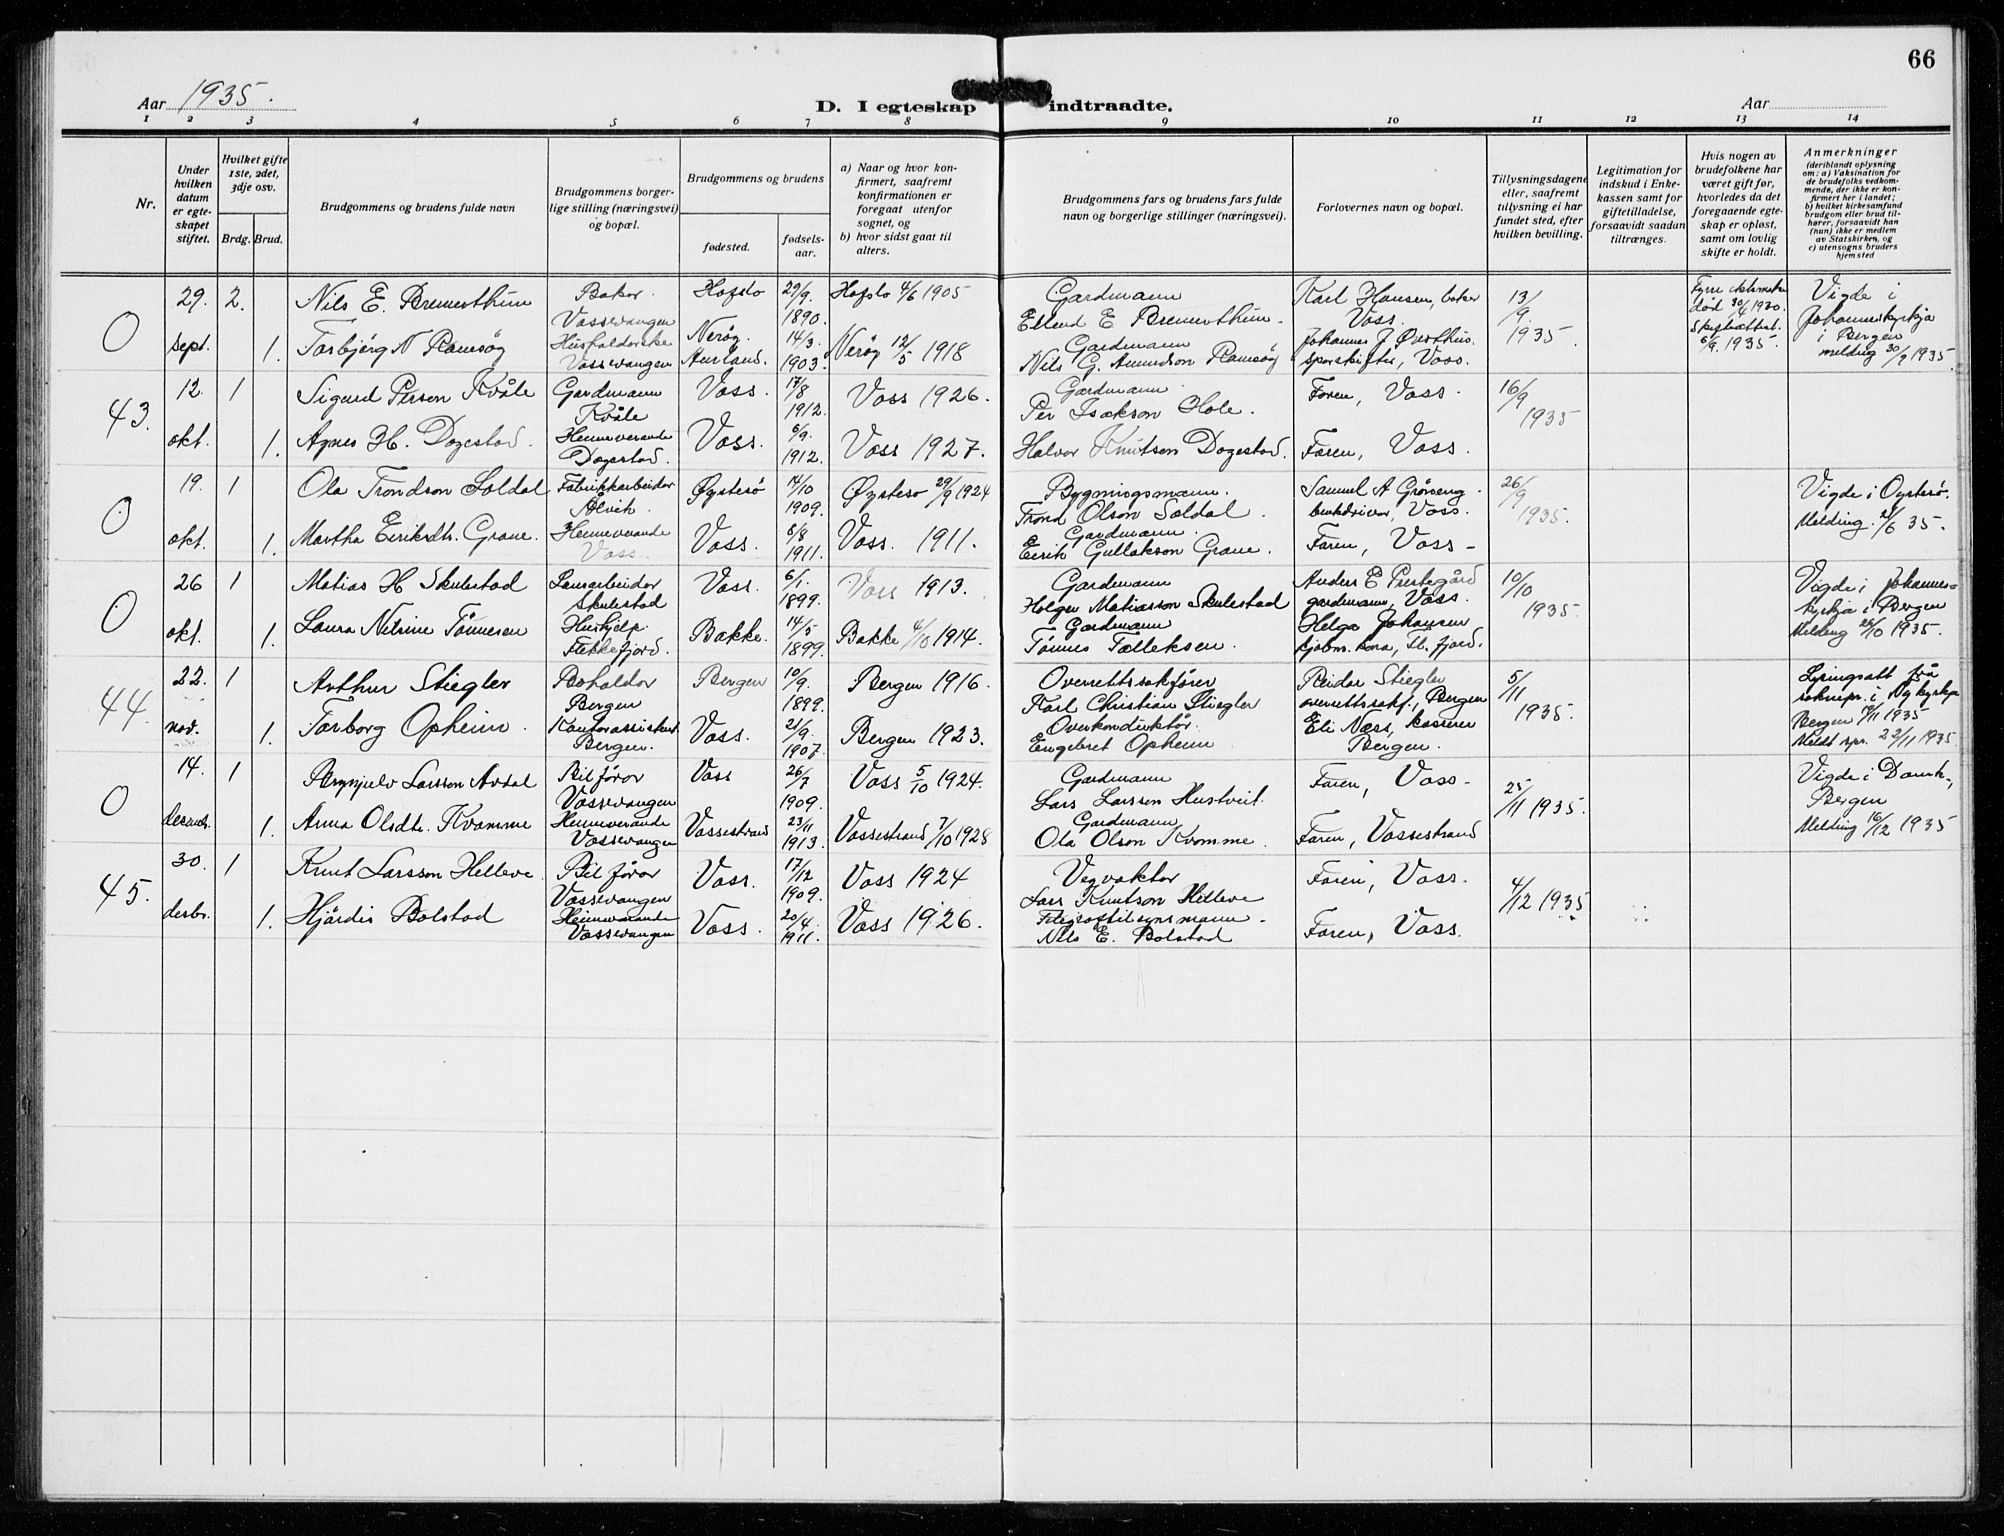 66
Aar 1935.
D. I egteskap indtraadte.
Aar
1 2 3 4 5 6 7 8 9 10 11 12 13 14
Nr.
Under hvilken datum er egteskapet stiftet.
Hvilket gifte 1ste, 2det, 3dje osv.
Brdg. Brud.
Brudgommens og brudens fulde navn
Brudgommens borgerlige stilling (næringsvei) og bopæl.
Brudgommens og brudens
fødested. fødselsaar.
a) Naar og hvor konfirmert, saafremt konfirmationen er foregaat utenfor sognet, og
b) hvor sidst gaat til alters.
Brudgommens fars og brudens fars fulde navn og borgerlige stillinger (næringsvei).
Forlovernes navn og bopæl.
Tillysningsdagene eller, saafremt tillysning ei har fundet sted, efter hvilken bevilling.
Legitimation for indskud i Enkekassen samt for giftetilladelse, forsaavidt saadan tiltrænges.
Hvis nogen av brudefolkene har været gift før, hvorledes da det foregaaende egteskap er opløst, samt om lovlig skifte er holdt.
Anmerkninger
(deriblandt oplysning om: a) Vaksination for de brudefolks vedkommende, der ikke er konfirmert her i landet; b) hvilket kirkesamfund brudgom eller brud tilhører, forsaavidt han (hun) ikke er medlem av Statskirken, og c) utensogns bruders hjemsted
0 29. sept. 2. Nils E. Bremerthun Baker. Vossevangen Hafslo 29/9. 1890. Hafslo 4/6 1905 Gardmann Ellend E Bremerthun. Karl Hansen, baker Voss. 13/9 1935 død 30/4 1930 6/9. 1935. Vigde i Johanneskyrkja i Bergen melding 30/9 1935
1. Torbjørg N Ramsøy Vossevangen Nerøy Aurland. 14/3. 1903. Nerøy 12/5 1918 Gardmann Nils G. Amundson Ramsøy Johannes J Øvsthus sporskifter, Voss.
43. 12. okt. 1 Sigurd Person Kvåle Gardmann Kvåle Voss. 17/8 1912. Voss 1926. Gardmann Per Isakson Hole. Faren, Voss. 16/9 1935
1. Agnes H. Dagestad. Heimeverande Dagestad. Voss. 6/9. 1912. Voss 1927. Halvor Knutsen Dagestad. Faren, Voss.
0 19. okt. 1 Ola Trondson Soldal Fabrikkarbeidar Ålvik. Øystesø 14/10 1909. Øystesø 29/9 1924 Bygningsmann. Trond Olson Soldal. Samuel A Grøneng brukdrivar, Voss. 26/9 1935. Vigde i Øystesø. Melding 35.
1. Martha Eiriksdtr. Grane. Heimeverande Voss. Voss. 6/8 1911. Voss. 1911. Gardmann. Eirik Gullakson Grane. Faren, Voss-
0 26 okt. 1 Matias H Skulestad Skulestad Voss. 6/1. 1899. Voss 1913. Gardmann Holger Matiasson Skulestad Anders E Prestegård gardmann, Voss. 10/10 1935. Vigde i Johanneskyrkja i Bergen Melding 26/10 1935.
1. Laura Netrine Tønnesen Hushjelp Flekkefjord. Bakke. 14/5 1899. Bakke 4/10 1914. Gardmann Tønnes Tolleksen. Helga Johansen kjøbm. kona, Fl. fjord.
44. 22. nov. 1 Arthur Stiegler Bokaldar Bergen Bergen 10/9. 1899. Bergen 1916. Overrettssakfører Karl Christian Stiegler Reidar Stiegler overrettssakf., Bergen 5/11 1935. Lysingsatt frå soknepr. i Nykyrkja Bergen 19/11 1935 Meldt spr. 22/11 1935
1. Torborg Opheim. Kontorassistent Bergen. Voss. 21/9. 1907. Bergen 1923. Overkonduktør. Engebret Opheim Eli Næss, kasserer Bergen.
0 14. decemb. 1 Brynjulv Larsson Avdal Bilførar Vossevangen Voss 26/7 1909. Voss 5/10 1924. Gardmann Lars Larssen Hustveit. Faren, Voss- 25/11 1935. Vigde i Domk., Bergen Melding 16/12 1935
1. Anna Olsdtr. Kvamme Heimeverande Vossevangen Vossestrand 23/11 1913. Vossestrand 7/10 1928 Gardmann Ola Olson Kvamme. Faren, Vossestrand
45. 30. desbr. 1 Knut Larsson Helleve. Bilførar Vossevangen Voss. 17/12 1909. Voss 1924 Vegvaktar Lars Knutson Helleve Faren, Voss. 4/12 1935
1. Hjørdis Bolstad Heimeverande Vossevangen Voss. 20/4. 1911. Voss 1926. Nils E. Bolstad Faren, Voss.